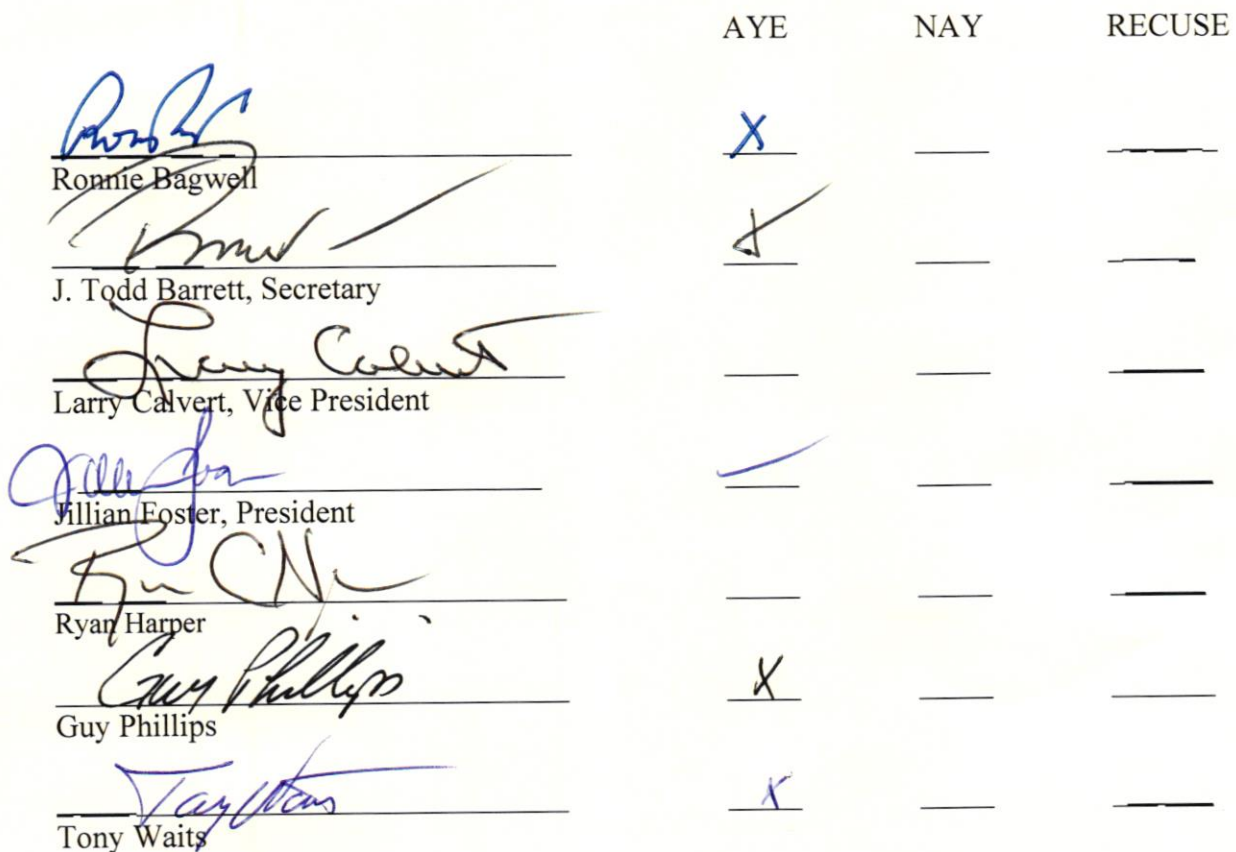 AYE NAY RECUSE
X
Ronnie Bagwell
X
J. Todd Barrett, Secretary
Larry Calvert
Larry Calvert, Vice President
Jillian Foster, President
Ryan Harper
Guy Phillips X
Guy Phillips
Tony Waits X
Tony Waits